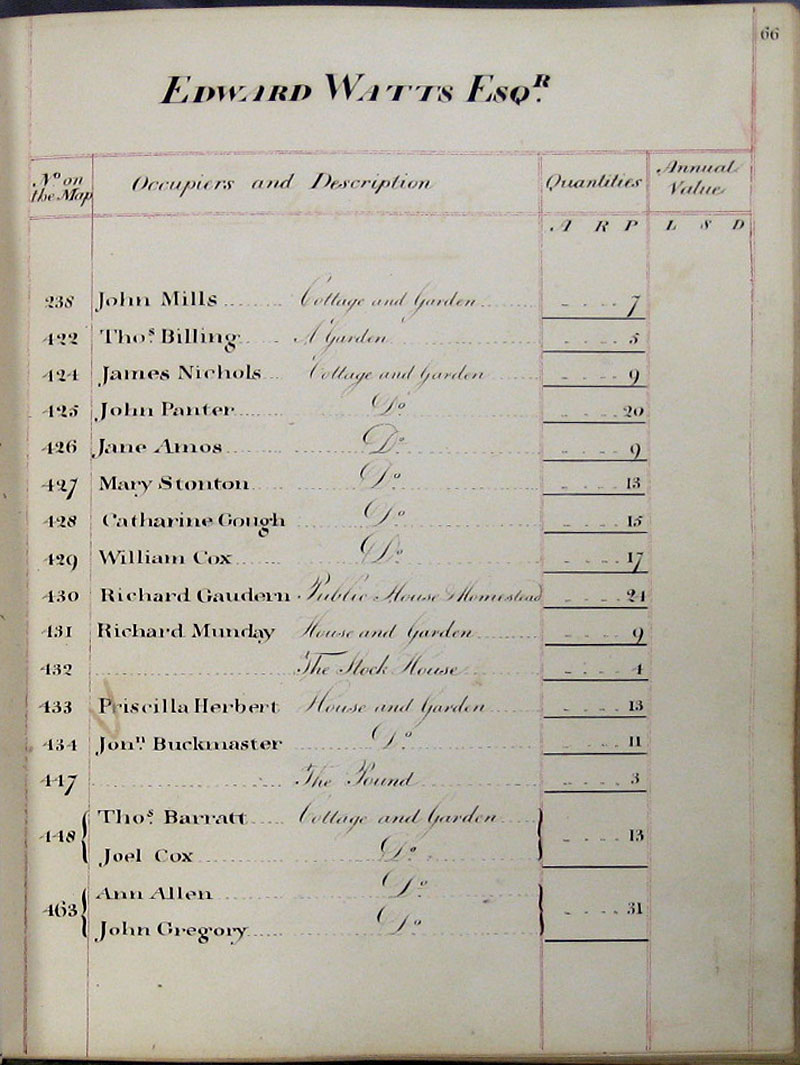 66
EDWARD WATTS ESQR.
No on the Map Occupiers and Description Quantities Annual Value
A R P L S D
238 John Mills Cottage and Garden 7
422 Thos. Billing A Garden 5
424 James Nichols Cottage and Garden 9
425 John Panter Do 20
426 Jane Amos Do 9
427 Mary Stonton Do 13
428 Catharine Gough Do 15
429 William Cox Do 17
430 Richard Gaudern Public House & Homestead 24
431 Richard Munday House and Garden 9
432 The Stock House 4
433 Priscilla Herbert House and Garden 13
434 Jonn. Buckmaster Do 11
447 The Pound 3
448 Thos. Barratt Cottage and Garden 13
Joel Cox Do
463 Ann Allen Do 31
John Gregory Do